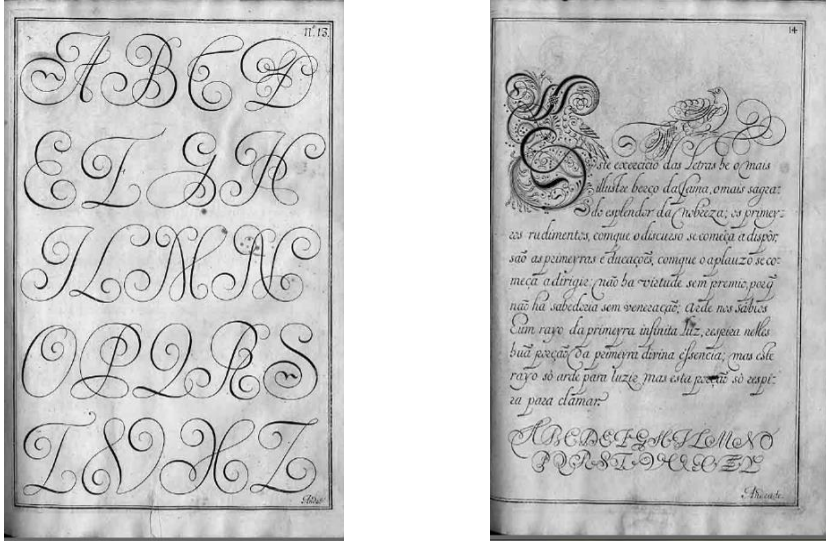 N.º 13.
A B C D
E F G H
I L M N
O P Q R S
T V X Z
Andrᵉ
14
Este exercicio das Letras he o mais
illustre berço da fama, o mais sagra:
do esplendor da nobreza; os primey:
ros rudimentos, com que o discurso se começa a dispor,
são as primeyras educações, com que o aplauzo se co:
meça a dirigir; não ha virtude sem premio, porq̃
não ha sabedoria sem veneração; Arde nos sabios
hum rayo da primeyra infinita luz, respira nelles
huã porção da primeyra divina essencia; mas este
rayo só arde para luzir, mas esta porção só respi:
ra para clamar.
A B C D E F G H I L M N O
P Q R S T V X
Andrade.